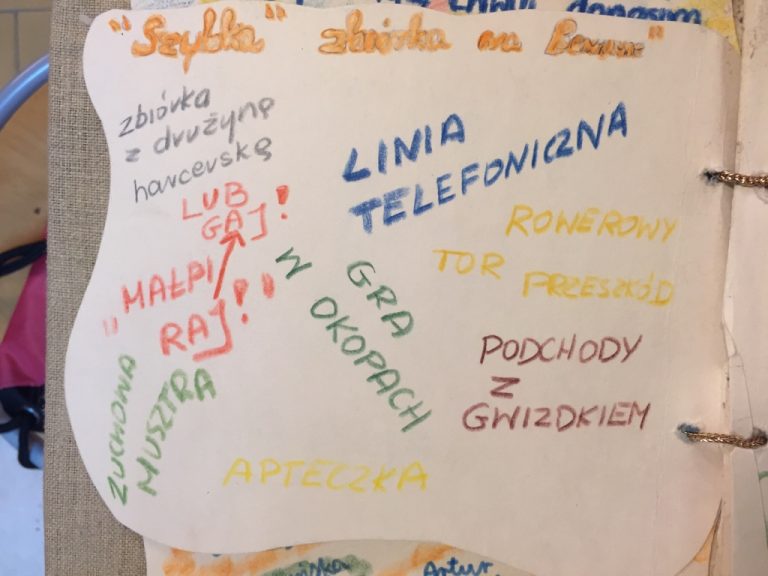 donosim
"Szybka" zbiórka na
zbiórka
z drużyną
harcerską
LINIA
TELEFONICZNA
LUB
GAJ!
ROWEROWY
TOR PRZESZKÓD
"MAŁPI
RAJ!"
GRA
W OKOPACH
PODCHODY
Z
GWIZDKIEM
ZUCHOWA
MUSZTRA
APTECZKA
Artur